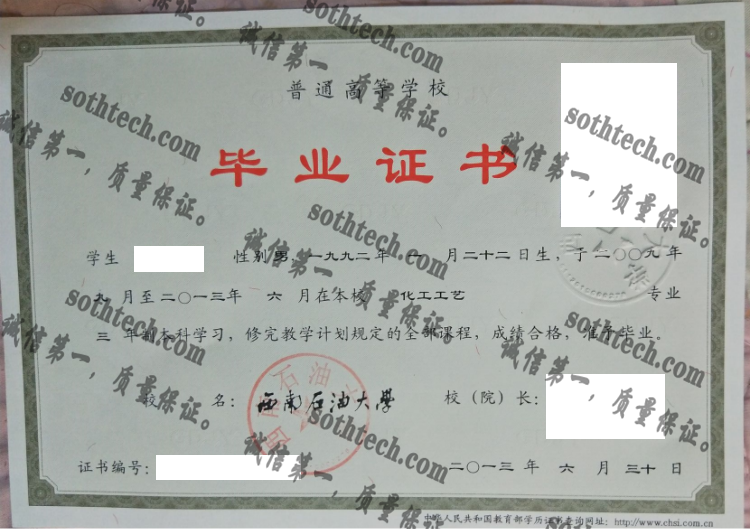 普通高等学校
毕业证书
学生 性别男，一九九二年 一 月二十二日生，于二〇〇九年
九 月至二〇一三年 六 月在本校 化工工艺 专业
三 年制本科学习，修完教学计划规定的全部课程，成绩合格，准予毕业。
校 名：西南石油大學 校（院）长：
证书编号： 二〇一三 年 六 月 三十 日
中华人民共和国教育部学历证书查询网址：http://www.chsi.com.cn
sothtech.com
诚信第一，质量保证。
sothtech.com
诚信第一，质量保证。
sothtech.com
诚信第一，质量保证。
sothtech.com
诚信第一，质量保证。
sothtech.com
诚信第一，质量保证。
sothtech.com
诚信第一，质量保证。
sothtech.com
诚信第一，质量保证。
石油